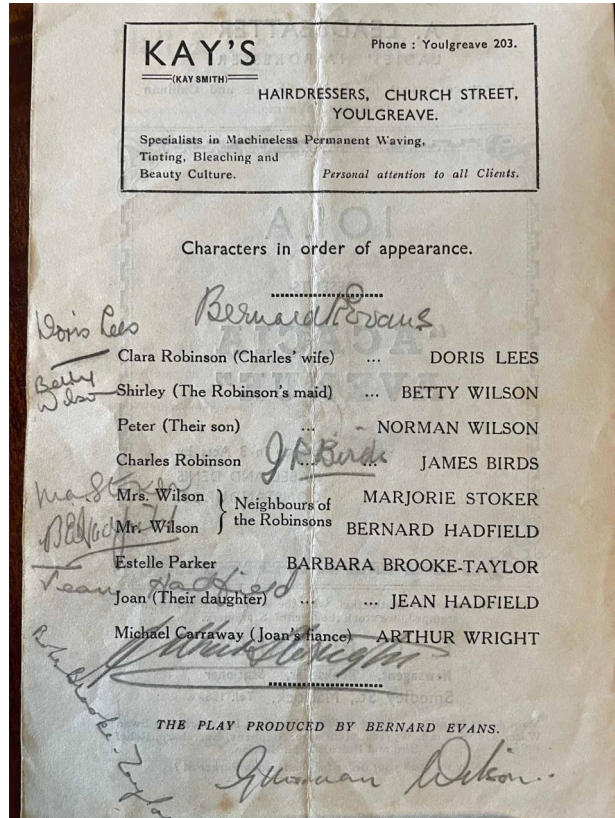 KAY'S
Phone : Youlgreave 203.
(KAY SMITH)
HAIRDRESSERS, CHURCH STREET,
YOULGREAVE.
Specialists in Machineless Permanent Waving,
Tinting, Bleaching and
Beauty Culture. Personal attention to all Clients.
Characters in order of appearance.
Bernard Evans
Doris Lees
Clara Robinson (Charles' wife) ... DORIS LEES
Betty
Wilson
Shirley (The Robinson's maid) ... BETTY WILSON
Peter (Their son) ... NORMAN WILSON
Charles Robinson ... ... JAMES BIRDS
J P Birds
Mrs. Wilson } Neighbours of MARJORIE STOKER
Mr. Wilson } the Robinsons BERNARD HADFIELD
Stoker
B Hadfield
Estelle Parker BARBARA BROOKE-TAYLOR
Jean Hadfield
Joan (Their daughter) ... ... JEAN HADFIELD
Michael Carraway (Joan's fiance) ARTHUR WRIGHT
Arthur Wright
Brooke-Taylor
THE PLAY PRODUCED BY BERNARD EVANS.
Norman Wilson